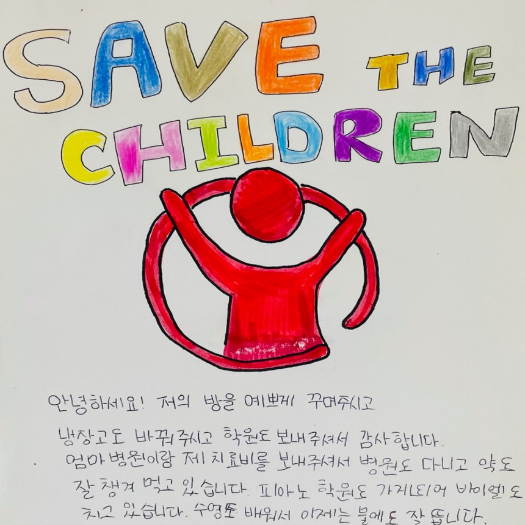 SAVE THE
CHILDREN
안녕하세요! 저의 방을 예쁘게 꾸며주시고
냉장고도 바꿔주시고 학원도 보내주셔서 감사합니다.
엄마병원이랑 제 치료비를 보내주셔서 병원도 다니고 약도
잘 챙겨 먹고 있습니다. 피아노 학원도 가게 되어 바이엘도
치고 있습니다. 수영도 배워서 이제는 물에도 잘 뜹니다.